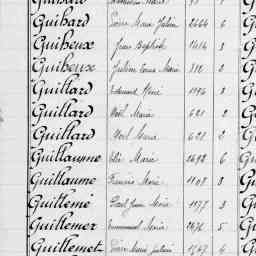 Guihard
Guihard Marie Julien 2464 6
Guiheux Jean Baptiste 1414 3
Guiheux Julien Marie 312 0
Guillard 1196 8
Guillard Noël Marie 621 2
Guillard Noël Marie 621 2
Guillaume Marie 2698 6
Guillaume Francis Marie 1108 8
Guillemé Paul Jean Marie 1177 3
Guillemer Emmanuel Marie 2676 5
Guillemet Marie Julien 1767 4